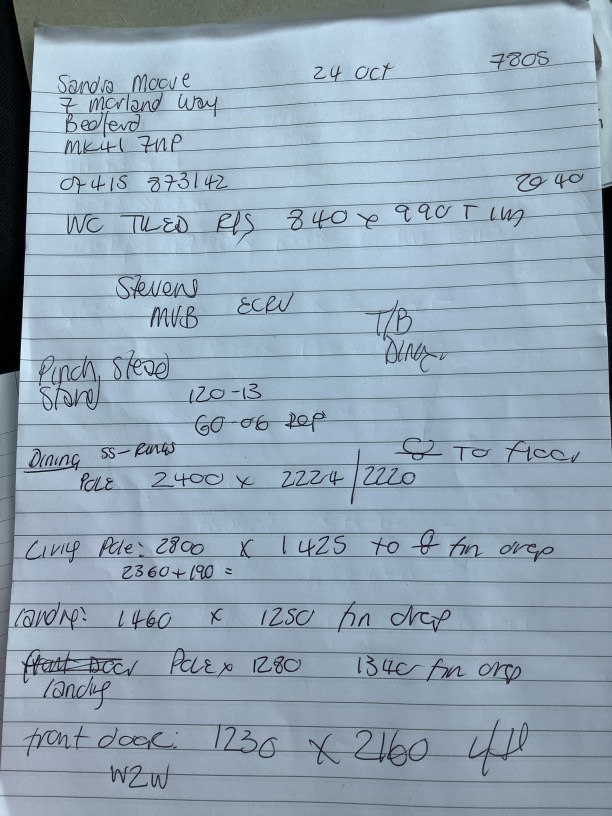 Sandra Moore 24 Oct 7805
7 Morland Way
Bedford
MK41 7NP
07415 873142
WC TILED R/S 840 x 990 T
Stevens
MVB
T/B
Pinch, Steve
120-13
60-06 Rep
Dining SS-Rings To floor
Pole 2400 x 2224/2220
Living Pole: 2800 x 1425 to fin drop
2360+190 =
Landing: 1460 x 1250 fin drop
Pole x 1280 1340 fin drop
Landing
front door: 1230 x 2160
W2W